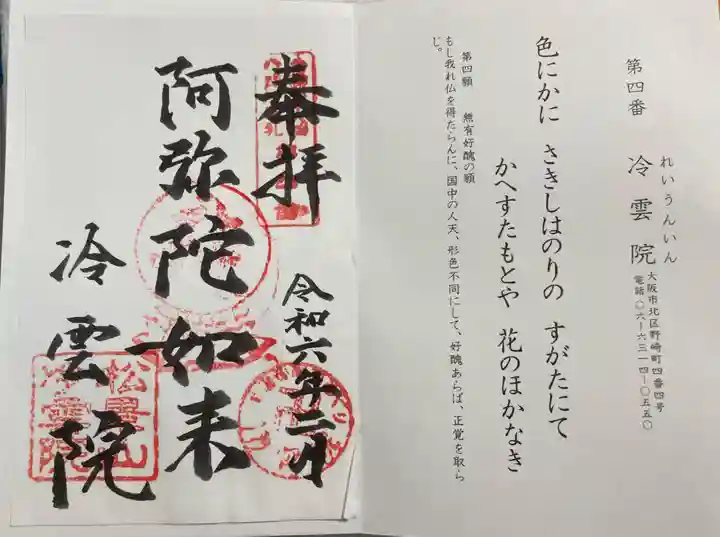 第四番　冷雲院
れいうんいん
大阪市北区野崎町四番四号
電話〇六ー六三一四ー〇五五〇
色にかに　さきしはのりの　すがたにて
かへすたもとや　花のほかなき
第四願　無有好醜の願
もし我れ仏を得たらんに、国中の人天、形色不同にして、好醜あらば、正覚を取ら
じ。
奉拝
令和六年二月
阿弥陀如来
冷雲院